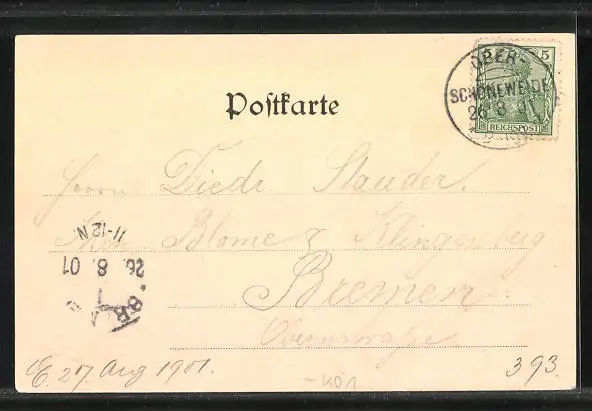 Postkarte
OBER-
SCHÖNEWEIDE
26 8 01
5
REICHSPOST
Herrn Diedr. Stauder.
Blome & Klingenberg
Bremen
Obernstraße
11-12 N
26. 8. 01
E. 27 Aug 1901.
393.